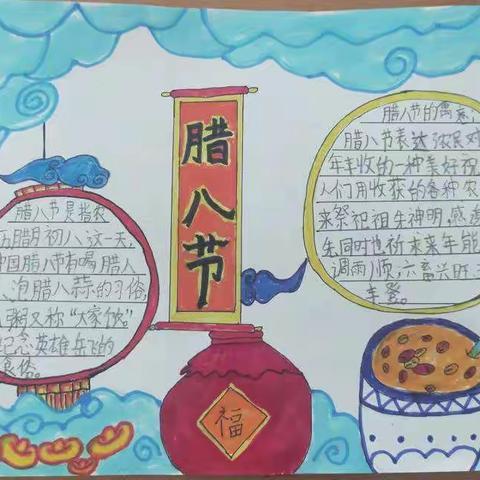 腊八节
腊八节是指农
历腊月初八这一天,
中国腊八节有喝腊八
、泡腊八蒜的习俗,
粥又称“大家饭”
纪念英雄岳飞的
食俗。
腊八节的寓意,
腊八节表达农民对
年丰收的一种美好祝
人们用收获的各种农
来祭祀祖先神明,感
先同时也祈求来年能
调雨顺,六畜兴旺
丰登。
福